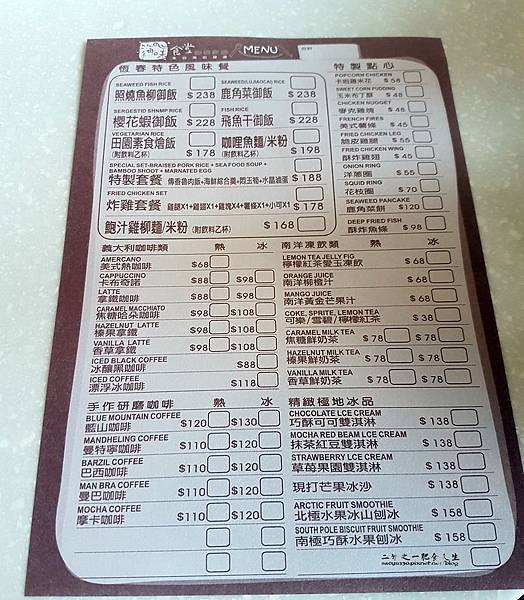 食堂 MENU
恆春特色風味餐
SEAWEED FISH RICE
照燒魚柳御飯 $238
SEAWEED(LU.JIAOCAI) RICE
鹿角菜御飯 $238
SERGESTID SHRIMP RICE
櫻花蝦御飯 $228
FISH RICE
飛魚干御飯 $228
VEGETARIAN RICE
田園素食燴飯
(附飲料乙杯) $178
咖哩魚麵/米粉
(附飲料乙杯) $198
SPECIAL SET-BRAISED PORK RICE + SEA FOOD SOUP +
BAMBOO SHOOT + MARNATED EGG
特製套餐 傳香魯肉飯+海鮮綜合羹+悶玉筍+水晶滷蛋 $188
FRIED CHICKEN SET
炸雞套餐 雞腿X1+雞翅X1+雞塊X4+薯條X1+小可X1 $178
鮑汁雞柳麵/米粉 (附飲料乙杯) $168
特製點心
POPCORN CHICKEN
卡啦雞米花 $58
SWEET CORN PUDDING
玉米布丁酥 $48
CHICKEN NUGGET
麥克雞塊 $48
FRENCH FIRES
美式薯條 $45
FRIED CHICKEN LEG
脆皮雞腿 $55
FRIED CHICKEN WING
酥炸雞翅 $45
ONION RING
洋蔥圈 $55
SQUID RING
花枝圈 $70
SEAWEED PANCAKE
鹿角菜餅 $120
DEEP FRIED FISH
酥炸魚條 $98
義大利咖啡類 熱 冰
AMERCANO
美式熱咖啡 $68
CAPPUCCINO
卡布奇諾 $88 $98
LATTE
拿鐵咖啡 $88 $98
CARAMEL MACCHATO
焦糖哈朵咖啡 $98 $108
HAZELNUT LATTE
榛果拿鐵 $98 $108
VANILLA LATTE
香草拿鐵 $98 $108
ICED BLACK COFFEE
冰釀黑咖啡 $88
ICED COFFEE
漂浮冰咖啡 $118
南洋凍飲類 熱 冰
LEMON TEA JELLY FIG
檸檬紅茶愛玉凍飲 $68
ORANGE JUICE
南洋柳橙汁 $68
MANGO JUICE
南洋黃金芒果汁 $68
COKE, SPRITE, LEMON TEA
可樂/雪碧/檸檬紅茶 $38
CARAMEL MILK TEA
焦糖鮮奶茶 $78 $78
HAZELNUT MILK TEA
榛果鮮奶茶 $78 $78
VANILLA MILK TEA
香草鮮奶茶 $78 $78
手作研磨咖啡 熱 冰
BLUE MOUNTAIN COFFEE
藍山咖啡 $120 $130
MANDHELING COFFEE
曼特寧咖啡 $110 $120
BARZIL COFFEE
巴西咖啡 $110 $120
MAN BRA COFFEE
曼巴咖啡 $110 $120
MOCHA COFFEE
摩卡咖啡 $110 $120
精緻極地冰品
CHOCOLATE LCE CREAM
巧酥可可雙淇淋 $138
MOCHA RED BEAM LCE CREAM
抹茶紅豆雙淇淋 $138
STRAWBERRY LCE CREAM
草莓果園雙淇淋 $138
現打芒果冰沙 $138
ARCTIC FRUIT SMOOTHIE
北極水果冰山刨冰 $158
SOUTH POLE BISCUIT FRUIT SMOOTHIE
南極巧酥水果刨冰 $158
二分之一肥食人生